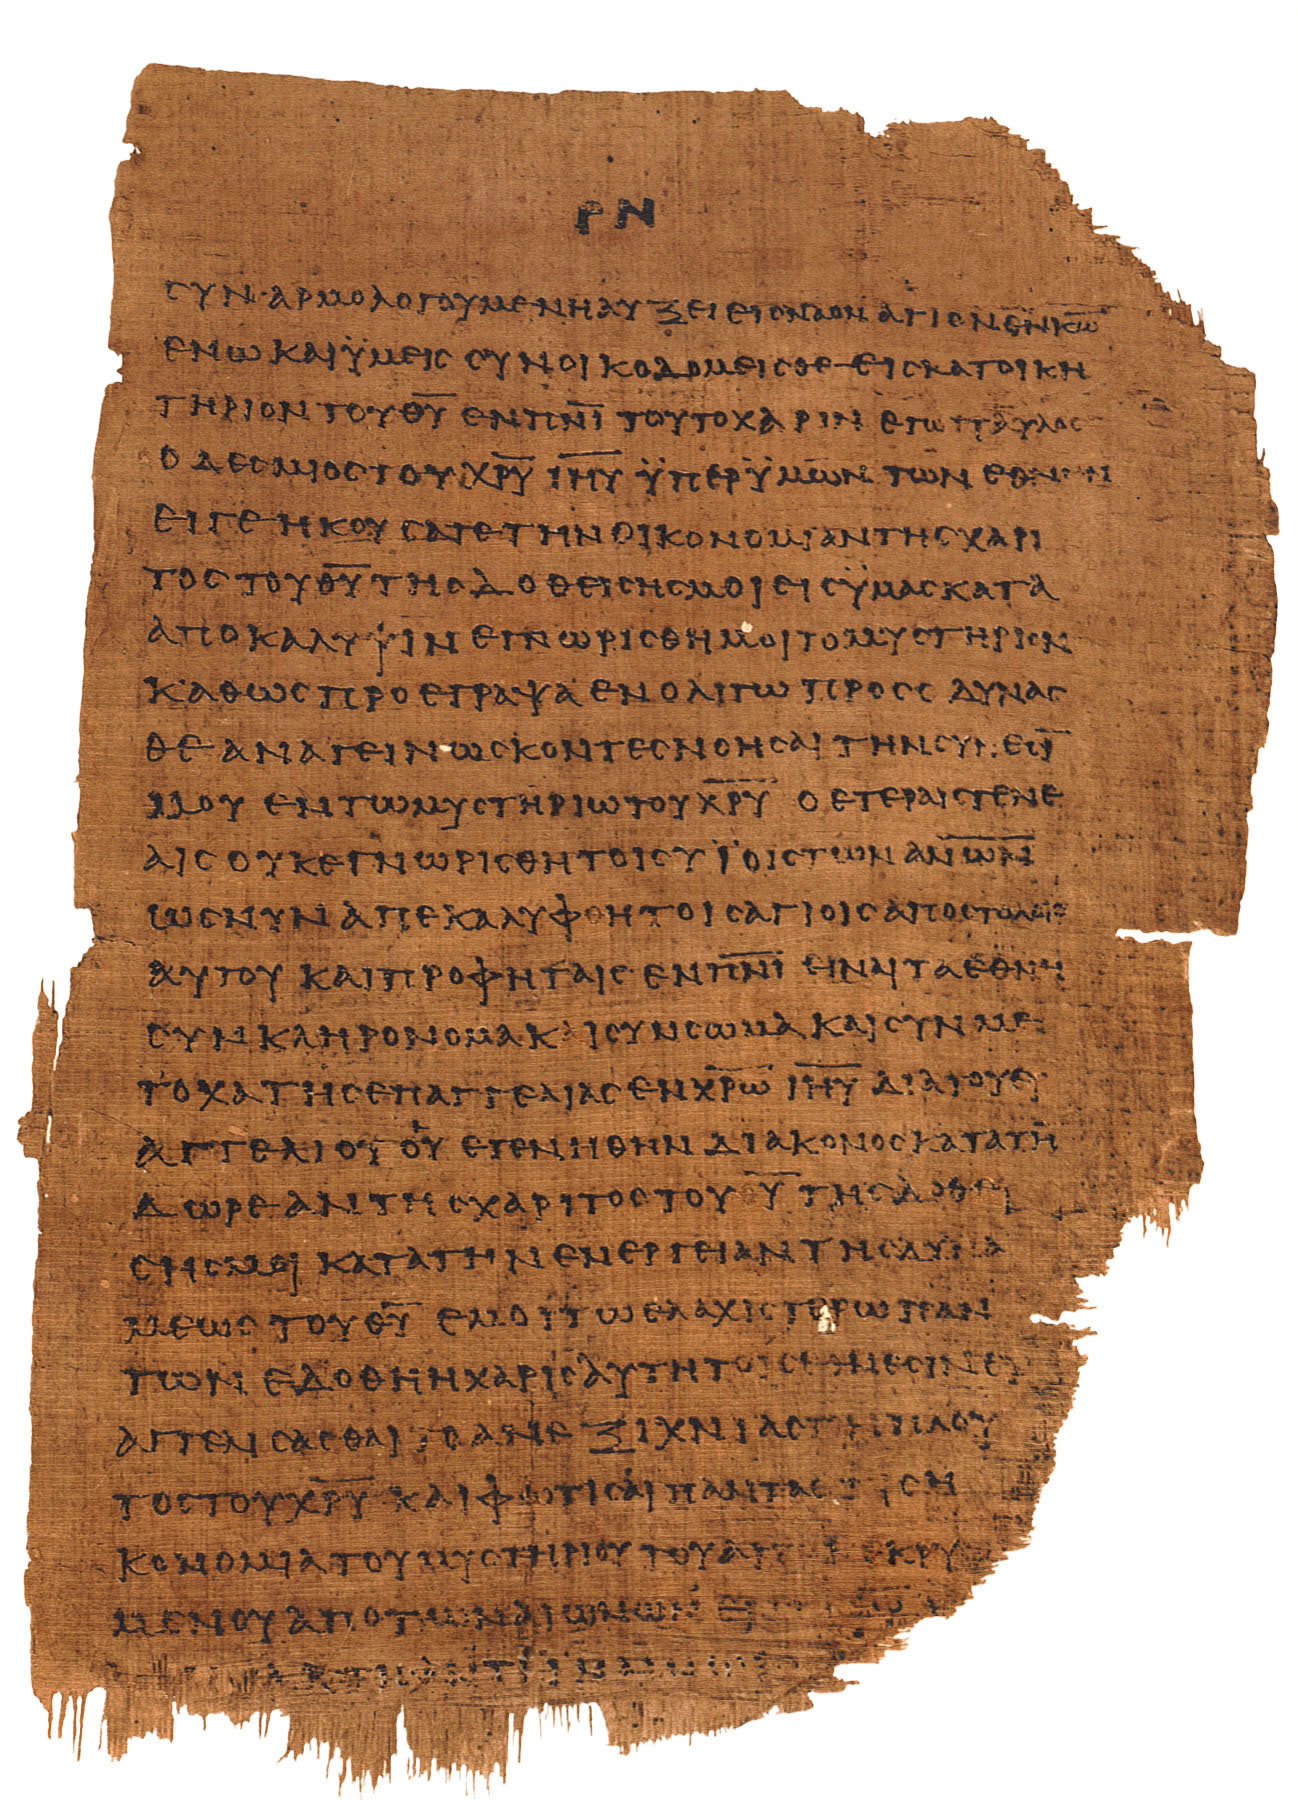 ΡΝ
ϹΥΝΑΡΜΟΛΟΓΟΥΜΕΝΗΑΥΞΕΙΕΙϹΝΑΟΝΑΓΙΟΝΕΝΚ̅Ω̅
ΕΝΩΚΑΙΫΜΕΙϹϹΥΝΟΙΚΟΔΟΜΕΙϹΘΕΕΙϹΚΑΤΟΙΚΗ
ΤΗΡΙΟΝΤΟΥΘ̅Υ̅ΕΝΠ̅Ν̅Ι̅ΤΟΥΤΟΧΑΡΙΝΕΓΩΠΑΥΛΟϹ
ΟΔΕϹΜΙΟϹΤΟΥΧ̅Ρ̅Υ̅Ι̅Η̅Υ̅ΫΠΕΡΫΜΩΝΤΩΝΕΘΝΩΝ
ΕΙΓΕΗΚΟΥϹΑΤΕΤΗΝΟΙΚΟΝΟΜΙΑΝΤΗϹΧΑΡΙ
ΤΟϹΤΟΥΘ̅Υ̅ΤΗϹΔΟΘΕΙϹΗϹΜΟΙΕΙϹΫΜΑϹΚΑΤΑ
ΑΠΟΚΑΛΥΨΙΝΕΓΝΩΡΙϹΘΗΜΟΙΤΟΜΥϹΤΗΡΙΟΝ
ΚΑΘΩϹΠΡΟΕΓΡΑΨΑΕΝΟΛΙΓΩΠΡΟϹϹΔΥΝΑϹ
ΘΕΑΝΑΓΕΙΝΩϹΚΟΝΤΕϹΝΟΗϹΑΙΤΗΝϹΥΝΕϹΙΝ
ΜΟΥΕΝΤΩΜΥϹΤΗΡΙΩΤΟΥΧ̅Ρ̅Υ̅ΟΕΤΕΡΑΙϹΓΕΝΕ
ΑΙϹΟΥΚΕΓΝΩΡΙϹΘΗΤΟΙϹΥΪΟΙϹΤΩΝΑΝ̅Ω̅Ν̅
ΩϹΝΥΝΑΠΕΚΑΛΥΦΘΗΤΟΙϹΑΓΙΟΙϹΑΠΟϹΤΟΛΟΙϹ
ΑΥΤΟΥΚΑΙΠΡΟΦΗΤΑΙϹΕΝΠ̅Ν̅Ι̅ΕΙΝΑΙΤΑΕΘΝΗ
ϹΥΝΚΛΗΡΟΝΟΜΑΚΑΙϹΥΝϹΩΜΑΚΑΙϹΥΝΜΕ
ΤΟΧΑΤΗϹΕΠΑΓΓΕΛΙΑϹΕΝΧ̅Ρ̅Ω̅Ι̅Η̅Υ̅ΔΙΑΤΟΥΕΥ
ΑΓΓΕΛΙΟΥΟΥΕΓΕΝΗΘΗΝΔΙΑΚΟΝΟϹΚΑΤΑΤΗ̅
ΔΩΡΕΑΝΤΗϹΧΑΡΙΤΟϹΤΟΥΘ̅Υ̅ΤΗϹΔΟΘΕΙ
ϹΗϹΜΟΙΚΑΤΑΤΗΝΕΝΕΡΓΕΙΑΝΤΗϹΔΥΝΑ
ΜΕΩϹΤΟΥΘ̅Υ̅ΕΜΟΙΤΩΕΛΑΧΙϹΤΟΤΕΡΩΠΑΝ
ΤΩΝΕΔΟΘΗΗΧΑΡΙϹΑΥΤΗΤΟΙϹΕΘΝΕϹΙΝΕΥ
ΑΓΓΕΛΙϹΑϹΘΑΙΤΟΑΝΕΞΙΧΝΙΑϹΤΟΝΠΛΟΥ
ΤΟϹΤΟΥΧ̅Ρ̅Υ̅ΚΑΙΦΩΤΙϹΑΙΠΑΝΤΑϹΤΙϹΗ
ΚΟΝΟΜΙΑΤΟΥΜΥϹΤΗΡΙΟΥΤΟΥΑΠΟΚΕΚΡΥ
ΜΕΝΟΥΑΠΟΤΩΝΑΙΩΝΩΝ